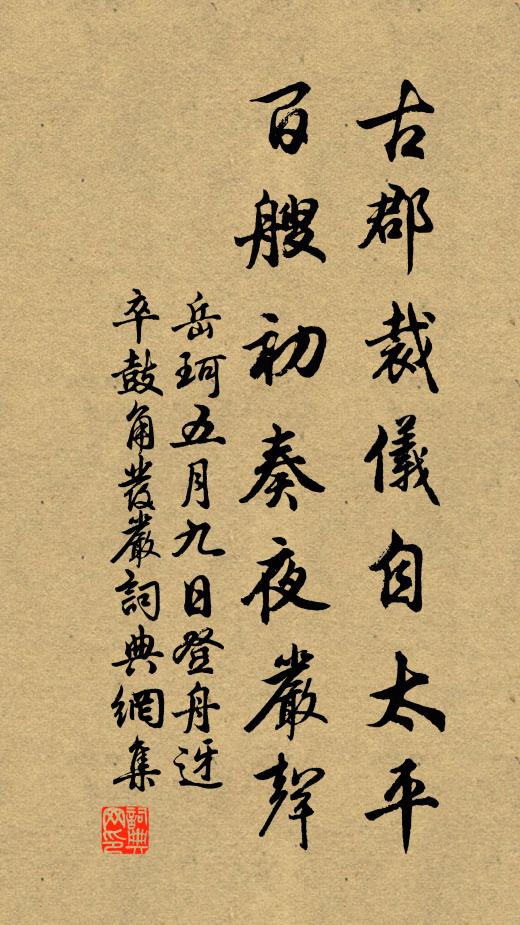 古郡裁儀自太平
百艘初奏夜嚴聲
岳珂五月九日登舟迓
卒鼓角發嚴詞典網集
詞典网印